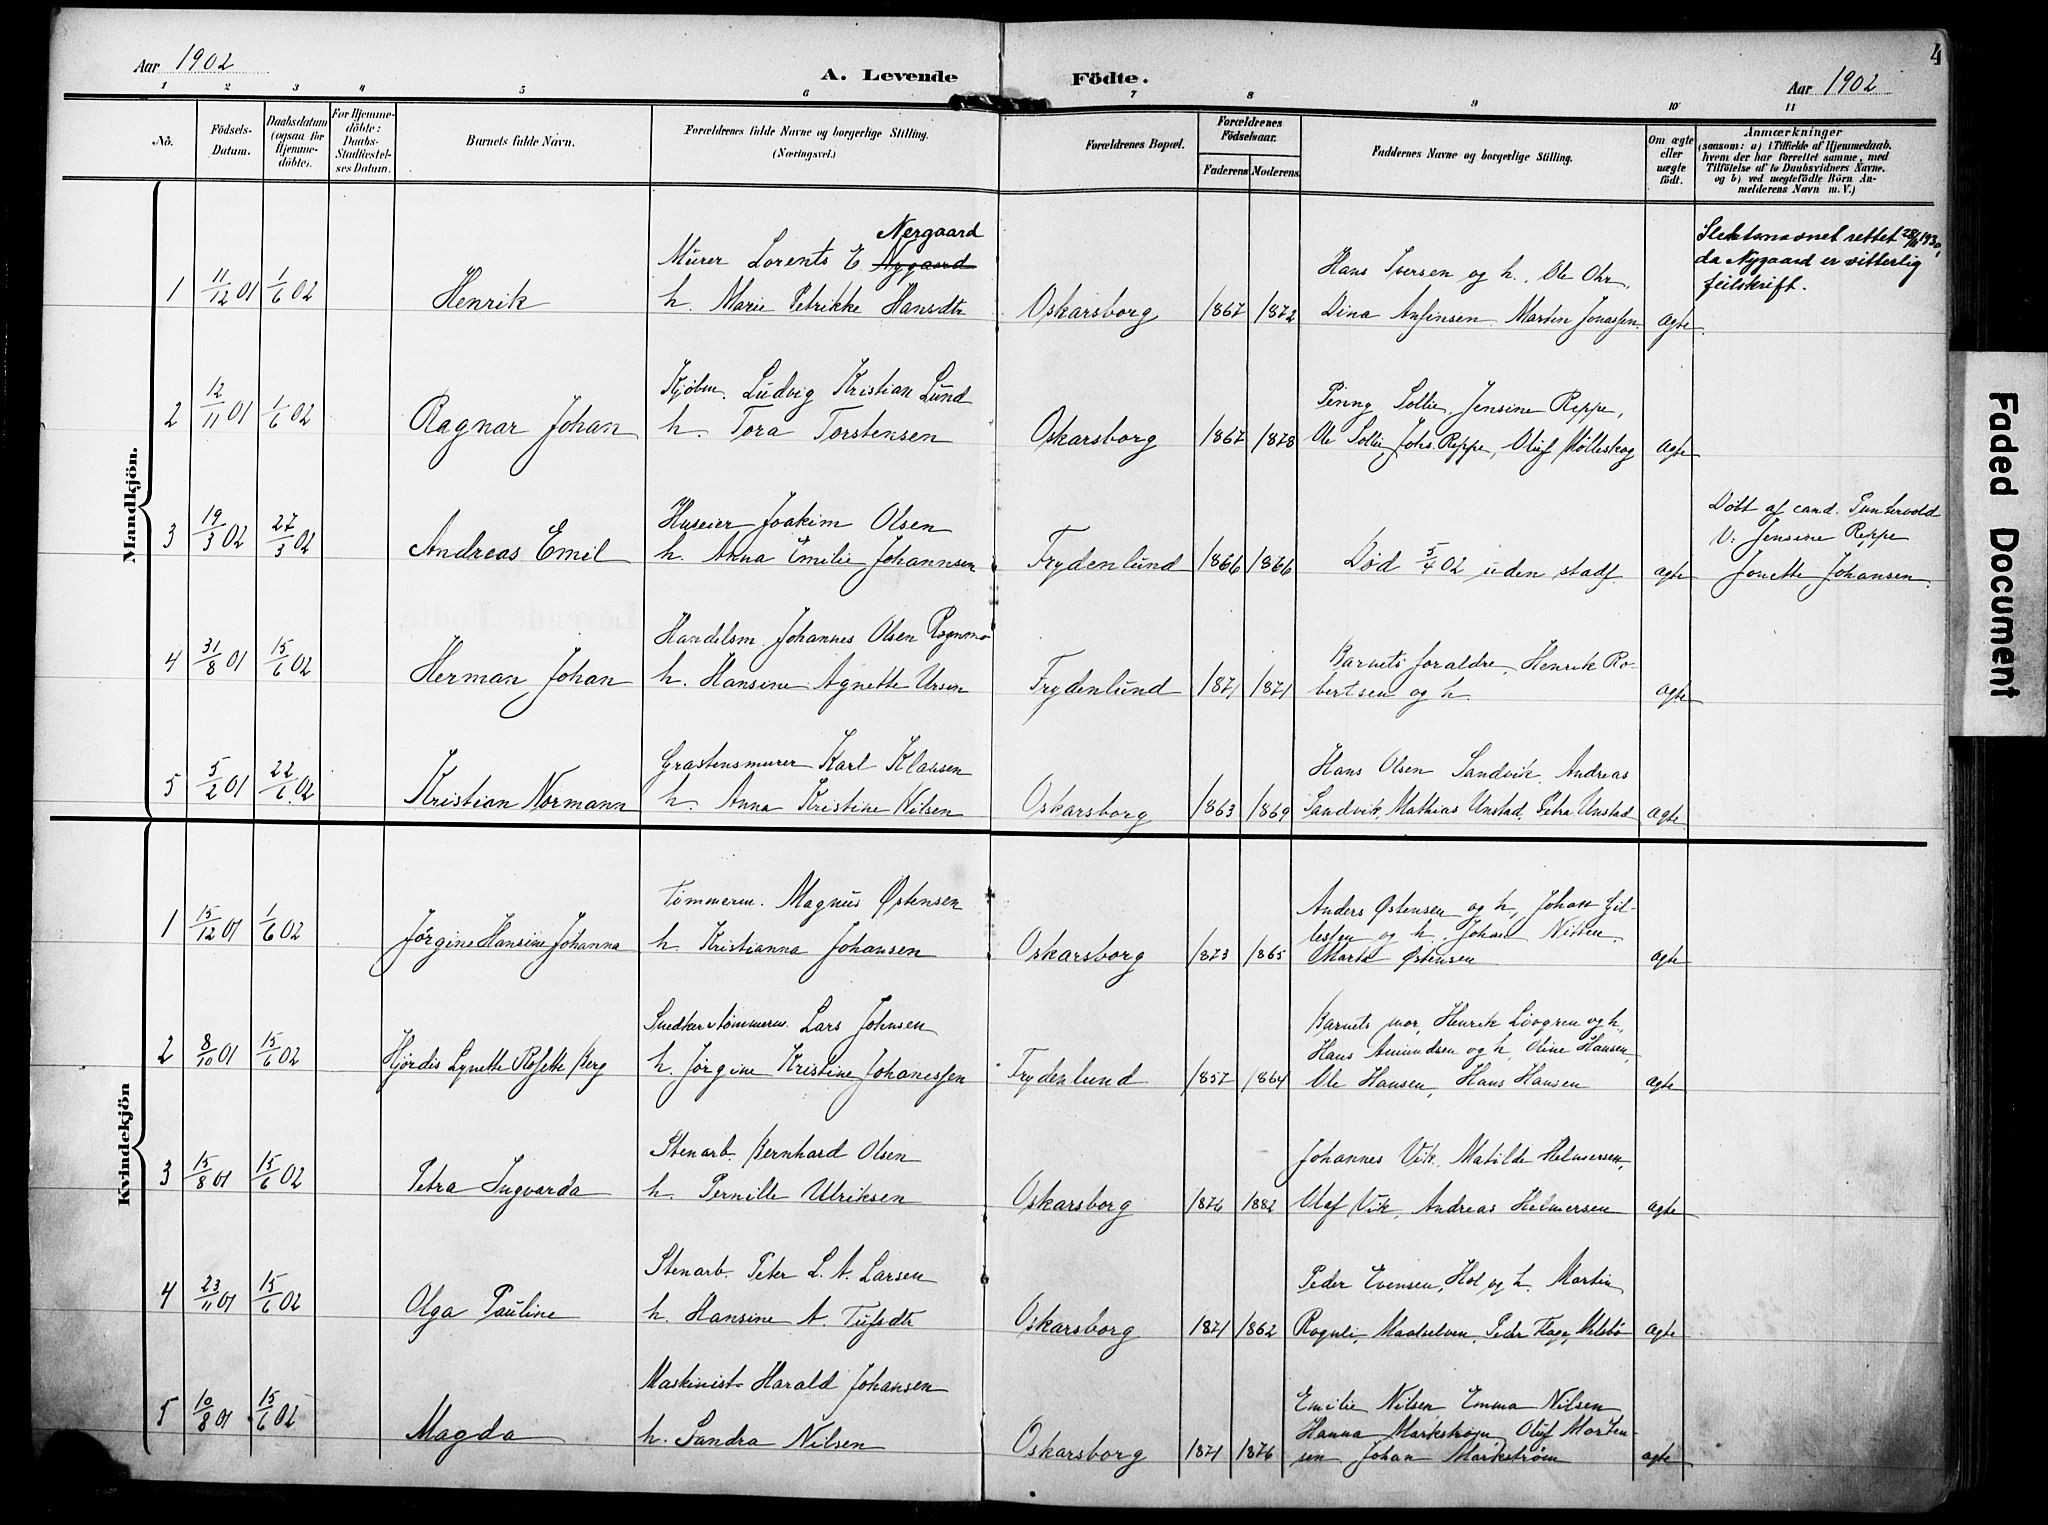 4
Aar 1902
A. Levende Födte.
Aar 1902
1 2 3 4 5 6 7 8 9 10 11
No.
Födsels-
Datum.
Daabsdatum
(ogsaa for
Hjemme-
döbte).
For Hjemme-
döbte:
Daabs-
Stadfæstel-
ses Datum.
Barnets fulde Navn.
Forældrenes fulde Navne og borgerlige Stilling.
(Næringsvei.)
Forældrenes Bopæl.
Forældrenes
Födselsaar.
Faderens Moderens
Faddernes Navne og borgerlige Stilling.
Om ægte
eller
uægte
født.
Anmærkninger
(saasom: a) i Tilfælde af Hjemmedaab,
hvem der har forrettet samme, med
Tilföielse af to Daabsvidners Navne.
og b) ved uegtefödte Börn An-
melderens Navn m. V.)
Mandkjön.
Nergaard
Murer Lorents E Nygaard
1 11/12 01 1/6 02 Henrik h. Marie Petrikke Hansdtr Oskarsborg 1867 1872
Hans Iversen og h., Ole Ohr,
Dina Anfinsen Martin Jonassen ægte
Slektsnavnet rettet 28/11 1930,
da Nygaard er vitterlig
feilskrift.
Kjøbm. Ludvig Kristian Lund
2 12/11 01 1/6 02 Ragnar Johan h. Tora Torstensen Oskarsborg 1867 1878
Penny Sollie, Jensine Reppe,
Ole Sollie, Johs. Reppe, Oluf Mølleskog ægte
Huseier Joakim Olsen
3 19/3 02 27/3 02 Andreas Emil h. Anna Emilie Johannsen Frydenlund 1866 1866 Død 5/4 02 uden stadf. ægte
Døbt af cand. Puntervold
V: Jensine Reppe
Jonette Johansen.
Handelsm. Johannes Olsen Rognmo
4 31/8 01 15/6 02 Herman Johan h. Hansine Agnette Ursin Frydenlund 1871 1871
Barnets forældre, Henrik Ro-
bertsen og h. ægte
Graastensmurer Karl Klausen
5 5/2 01 22/6 02 Kristian Normann h. Anna Kristine Nilsen Oskarsborg 1863 1869
Hans Olsen Sandvik, Andreas
Sandvik, Mathias Unstad, Petra Unstad ægte
Kvindekjön
Tømmerm. Magnus Østensen
1 15/12 01 1/6 02 Jørgine Hansine Johanna h. Kristianna Johansen Oskarsborg 1873 1865
Anders Østensen og h, Johan Gil-
lesten og h. Johan Nissen
Marta Østensen ægte
Snedker & tømmerm. Lars Johnsen
2 8/10 01 15/6 02 Hjørdis Lynette Rosette Berg h. Jørgine Kristine Johanessen Frydenlund 1857 1864
Barnets mor, Henrik Løvgren og h,
Hans Amundsen og h, Oline Hansen,
Ole Hansen, Hans Hansen ægte
Stenarb. Bernhard Olsen
3 15/8 01 15/6 02 Petra Ingvarda h. Pernille Ulriksen Oskarsborg 1876 1882
Johannes Vik, Matilde Helmersen,
Olaf Vik, Andreas Helmersen ægte
Stenarb. Peter L. A. Larsen
4 23/11 01 15/6 02 Olga Pauline h. Hansine A. Tufsdtr Oskarsborg 1871 1862
Peder Evensen, Hol og h. Martin
Rognli, Maalselven, Peder Flage, Melsbø ægte
Maskinist Harald Johansen
5 10/8 01 15/6 02 Magda h. Sandra Nilsen Oskarsborg 1871 1876
Emilie Nilsen Emma Nilsen
Hanna Markstrøm, Oluf Morten-
sen Johan Markstrøm ægte
Faded Document